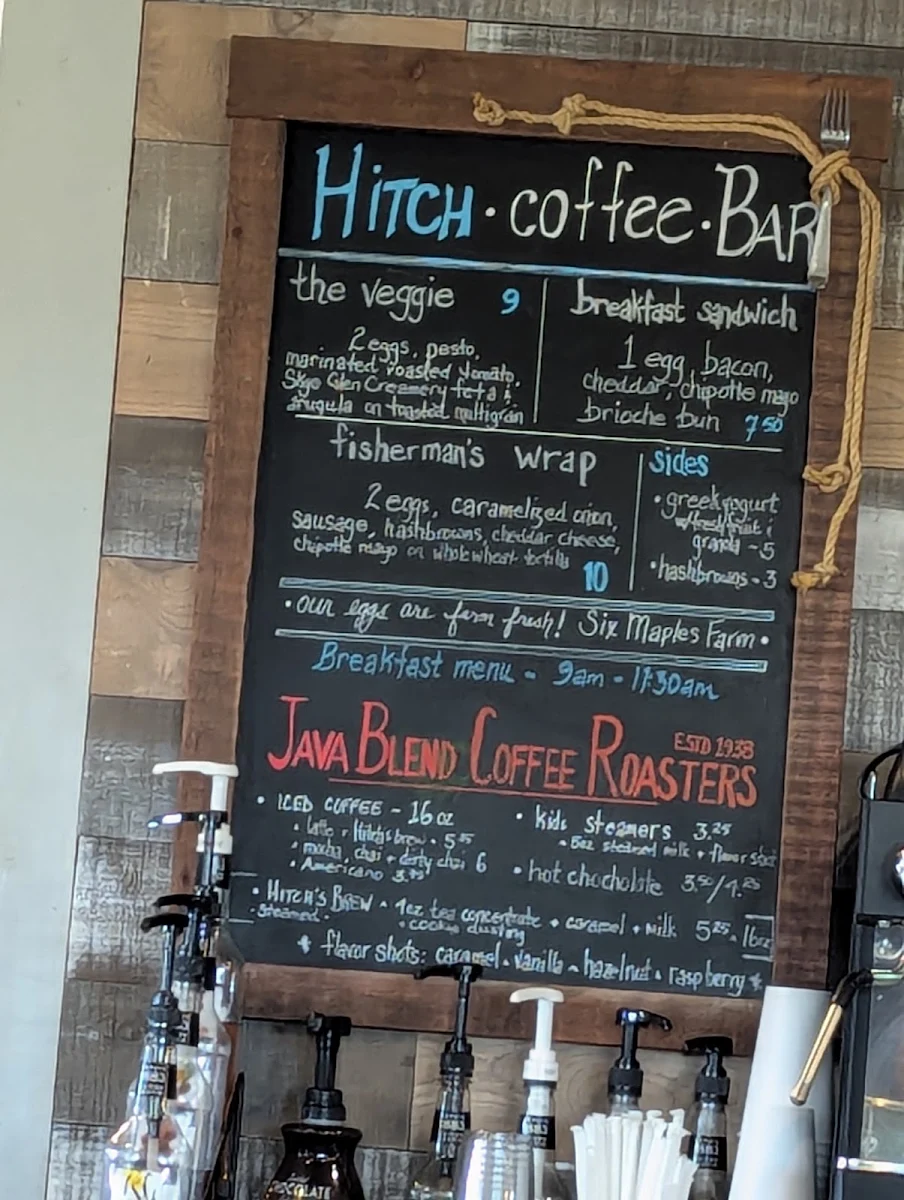 HiTCH · coffee · BAR
the veggie 9
2 eggs, pesto,
marinated roasted tomato,
Skye Glen Creamery feta &
arugula on toasted multigrain
breakfast sandwich
1 egg bacon,
cheddar, chipotle mayo
brioche bun 7.50
fisherman's wrap
2 eggs, caramelized onion,
sausage, hashbrowns, cheddar cheese,
chipotle mayo on whole wheat tortilla
10
sides
• greek yogurt
w/ fresh fruit &
granola - 5
• hashbrowns - 3
• our eggs are farm fresh! Six Maples Farm •
Breakfast menu - 9am - 11:30am
JAVA BLEND COFFEE ROASTERS
ESTD 1938
• ICED COFFEE - 16 oz
• latte • Hitch's brew •
• mocha, chai • dirty chai 6
• Americano
• kids steamers 3.25
• 8oz steamed milk + flavor shot
• hot chocholate 3.50/4.25
• HITCH'S BREW - 4oz tea concentrate + caramel + milk 5.25 . 16oz
• steamed • + cookie dusting
* flavor shots: caramel • vanilla • hazelnut • raspberry *